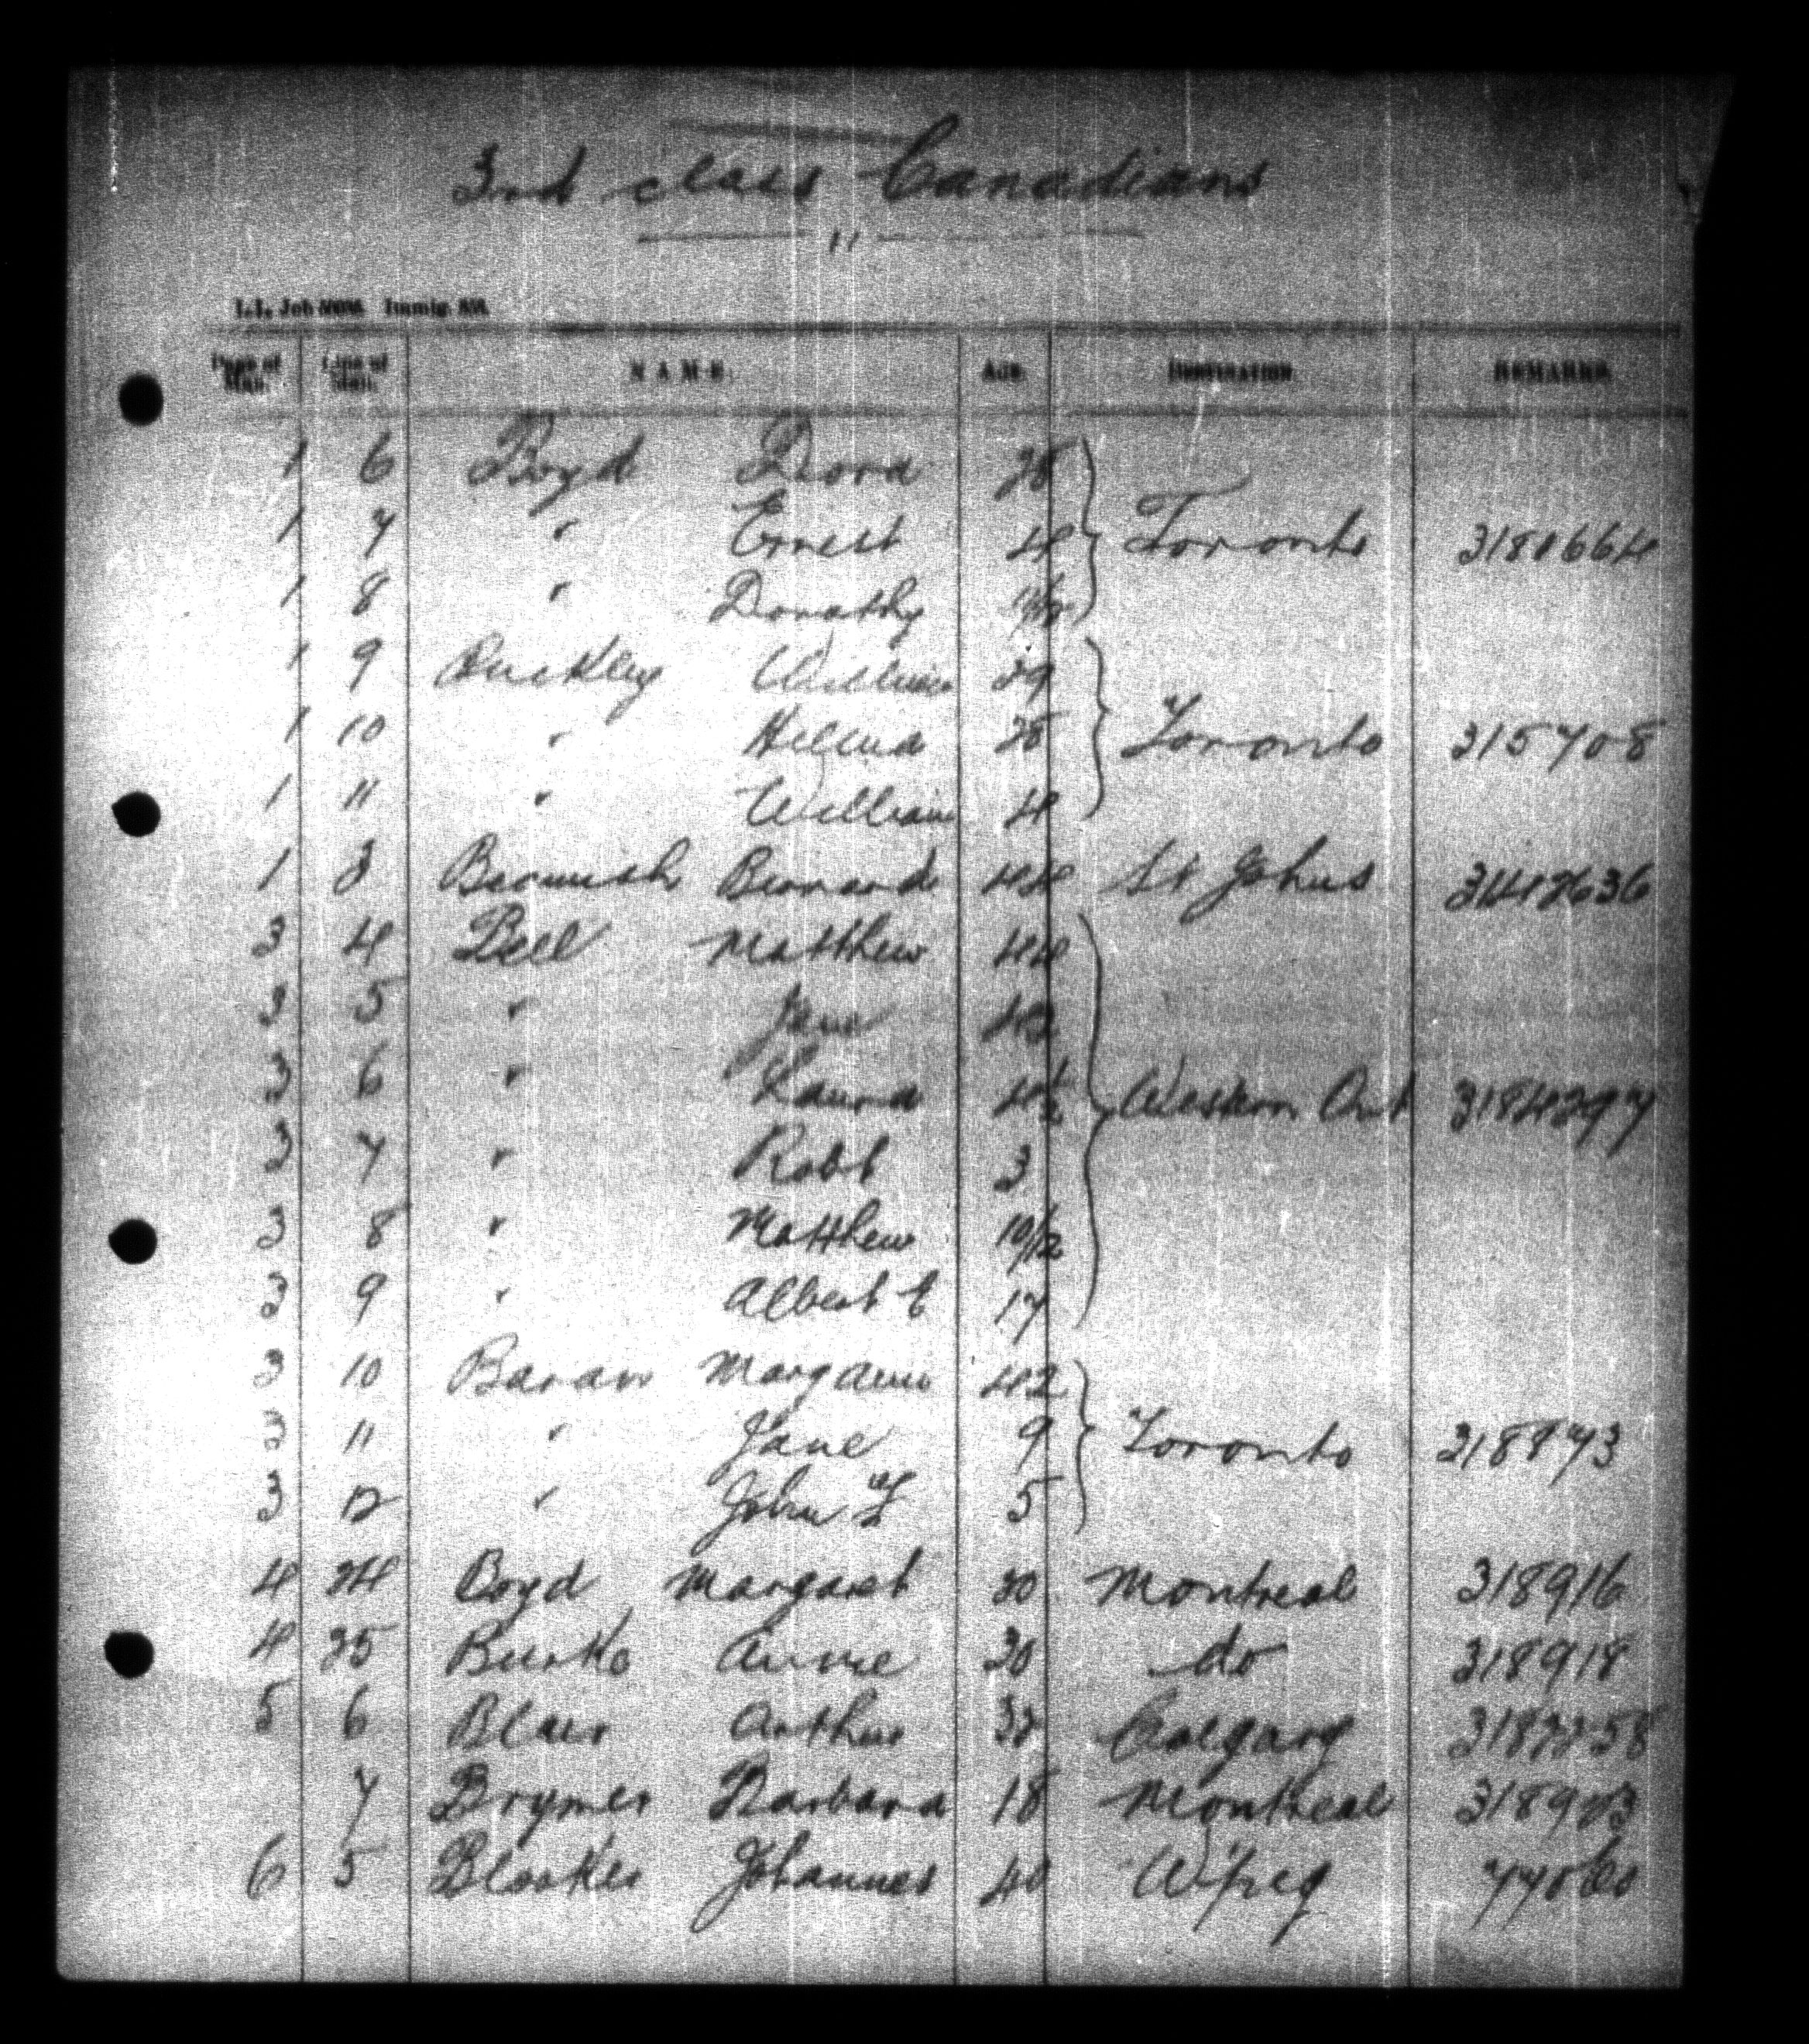 3rd class Canadians
"
I.I. Job Immig.
Page of Man. Line of Man. NAME AGE DESTINATION REMARKS
1 6 Boyd Dora 28
1 7 " Ernest 4 Toronto 3181664
1 8 " Dorathy
1 9 Buckley William 29
1 10 " Helena 28 Toronto 315708
1 11 " William 4
1 3 Bernard 44 St Johns
3 4 Bell Matthew 44
3 5 " Jane 42
3 6 " Laura Western Ont 3184297
3 7 " Robt 3
3 8 " Matthew 10/12
3 9 " Albert E 17
3 10 Baran Margaem 42
3 11 " Jane 9 Toronto 318873
3 12 " John 5
4 24 Boyd Margaret 20 Montreal 318916
4 25 Burke Annie 30 do 318918
5 6 Blair Arthur 32 Calgary 3182258
7 Brymer Barbara 18 Montreal 318923
6 5 Johannes 40 W'peg